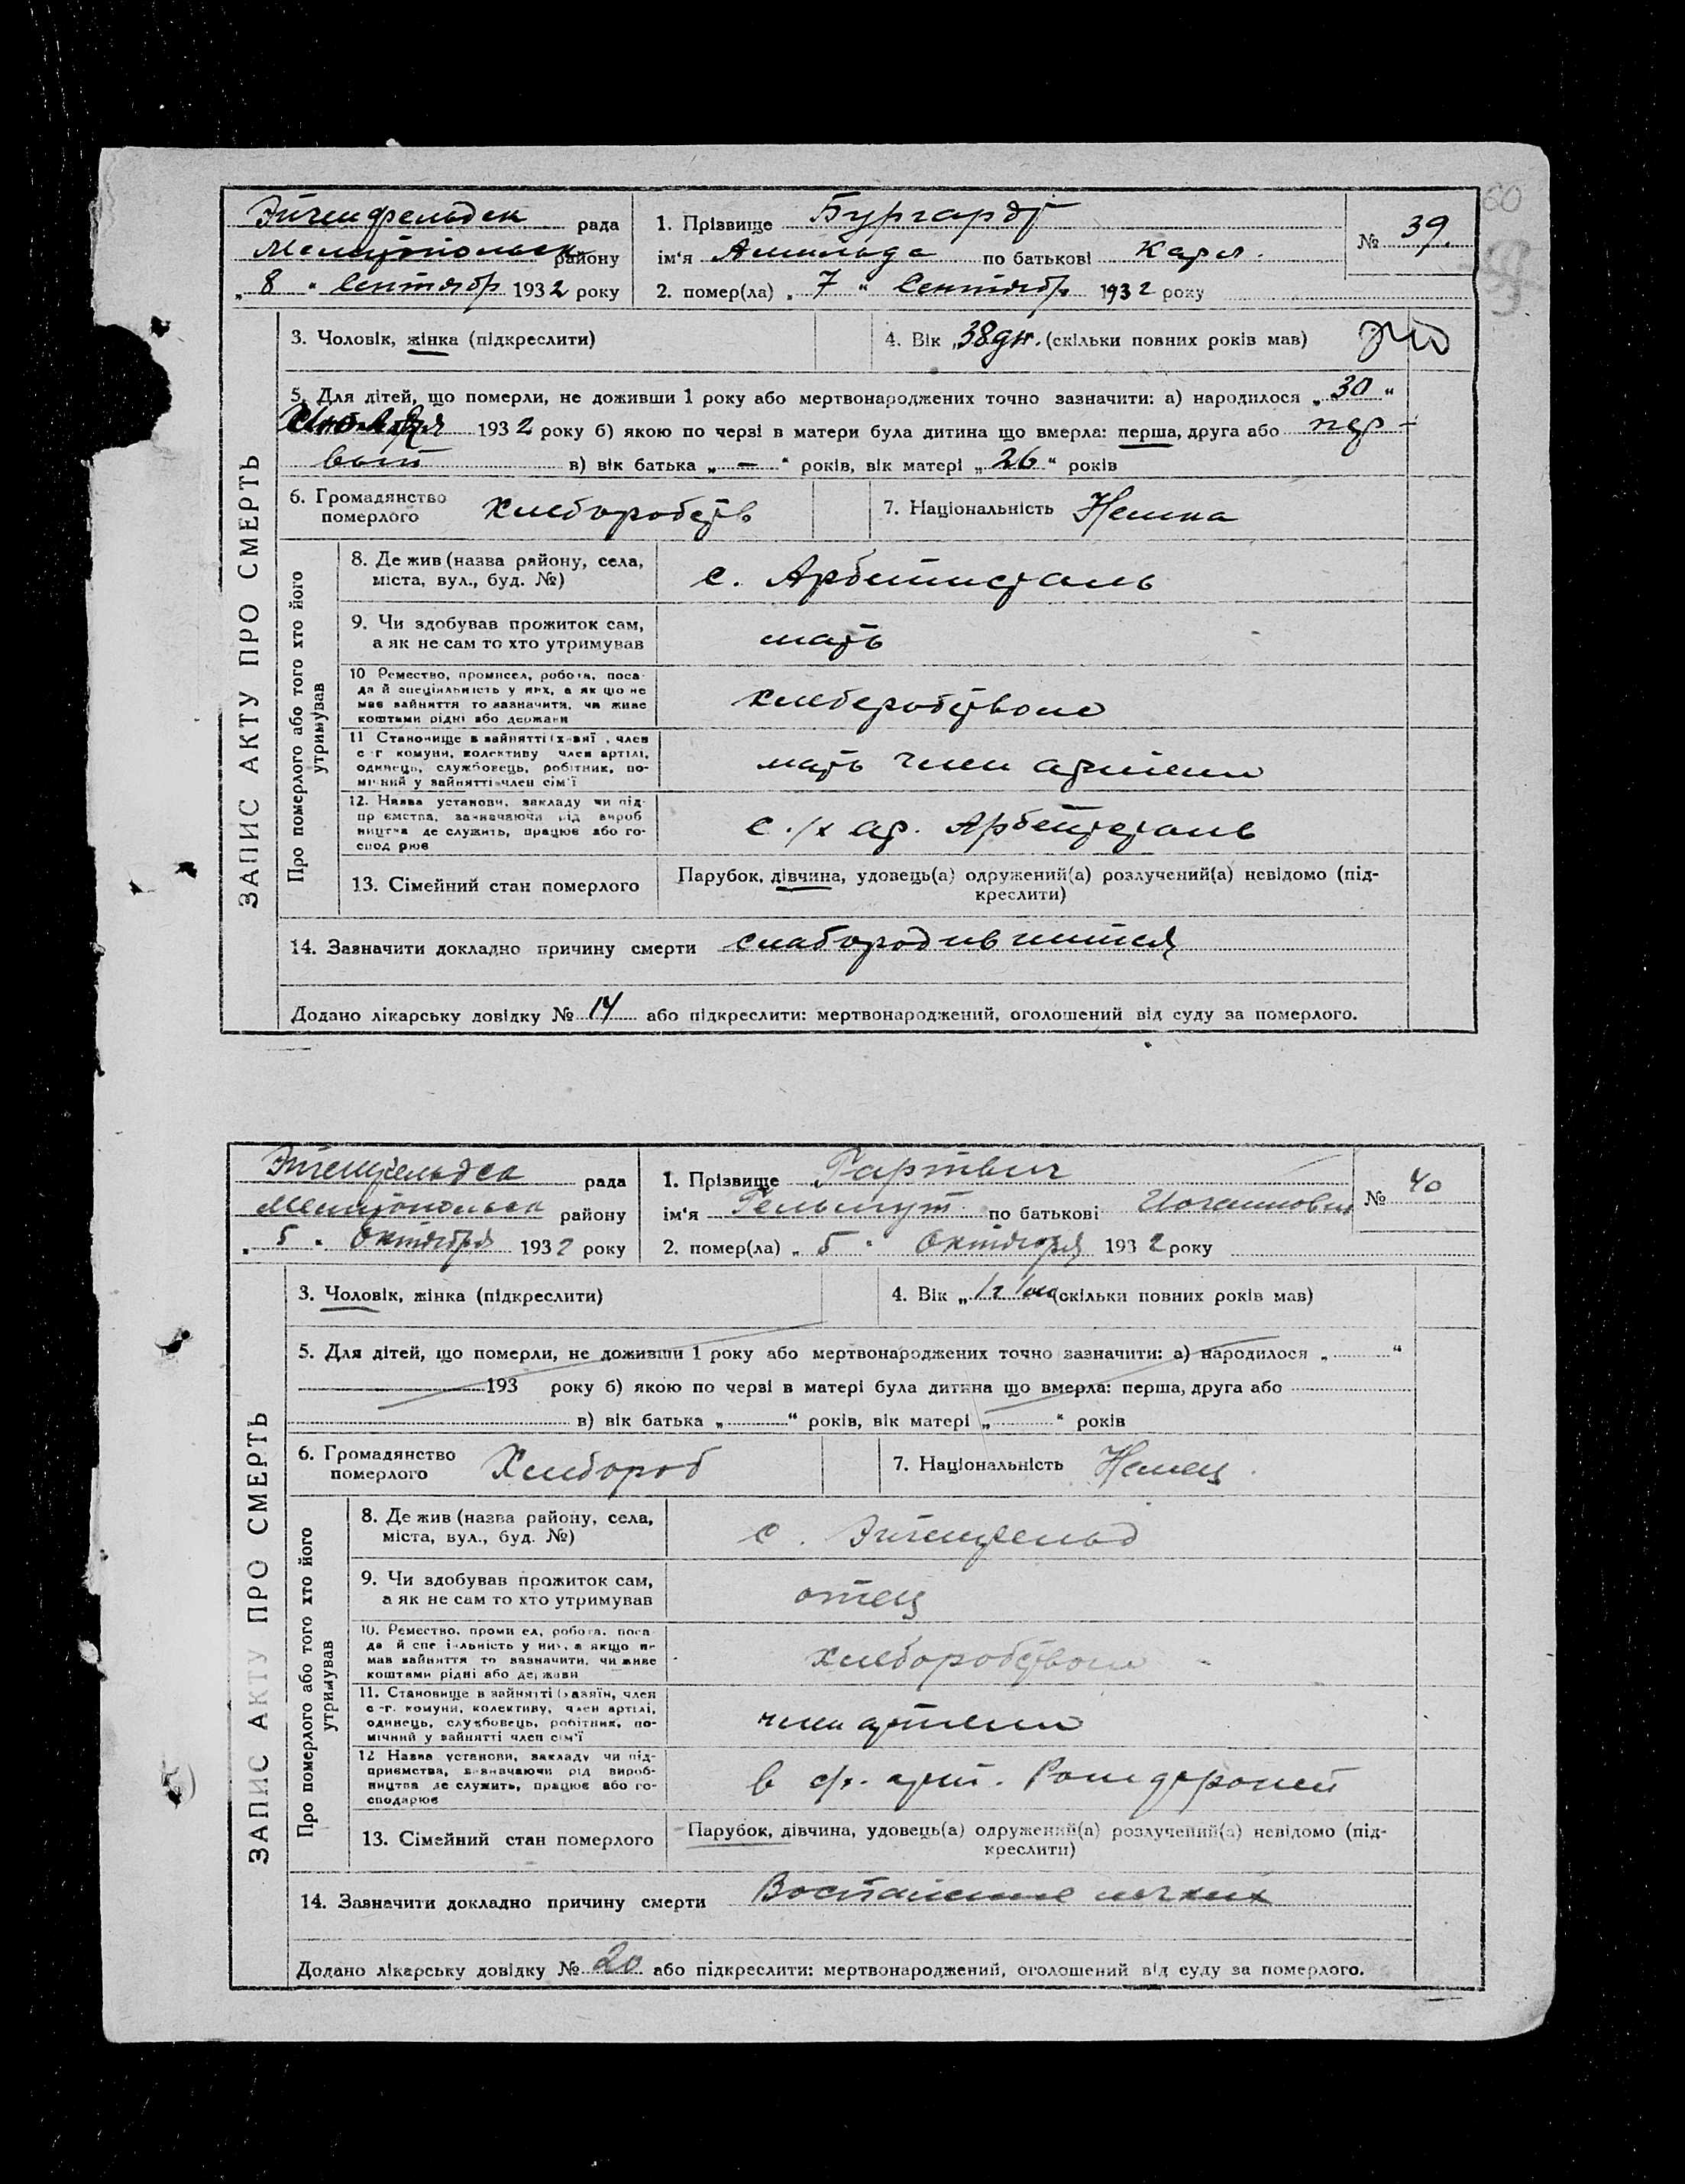 60
Эйгенфельдск рада
Мелитопольск району
„ 8 “ Сентябр 1932 року
1. Прізвище Бургардт
ім‘я по батькові Карл.
№ 39.
2. помер(ла) „ 7 “ Сентябр 1932 року
ЗАПИС АКТУ ПРО СМЕРТЬ
3. Чоловік, жінка (підкреслити)
4. Вік „38 дн. (скільки повних років мав)
5. Для дітей, що померли, не доживши 1 року або мертвонароджених точно зазначити: а) народилося „ 30 “
1932 року б) якою по черзі в матери була дитина що вмерла: перша, друга або пер-
вый в) вік батька „ – “ років, вік матері „ 26 “ років
6. Громадянство
померлого Хлеборобств
7. Національність Немка
Про померлого або того хто його
утримував
8. Де жив (назва району, села,
міста, вул., буд. №)
с. Арбейтсталь
9. Чи здобував прожиток сам,
а як не сам то хто утримував
мать
10 Ремество, промисел, робота, поса-
да й спеціяльність у них, а як що не
має зайняття то зазначити, чи живе
коштами рідні або держави
хлеборобством
11 Становище в зайнятті (хазяї , член
с г комуни, колективу член артілі,
одинець, службовець, робітник, по-
мічний у зайнятті член сім‘ї
мать член артели
12. Назва установи, закладу чи під-
пр ємства, зазначаючи рід вироб
ництва де служить, працює або го-
спод рює
с./х ар. Арбейтсталь
13. Сімейний стан померлого
Парубок, дівчина, удовець(а) одружений(а) розлучений(а) невідомо (під-
креслити)
14. Зазначити докладно причину смерти
Додано лікарську довідку № 14 або підкреслити: мертвонароджений, оголошений від суду за померлого.
Эйгенфельдск рада
Мелитопольск району
„ 5 “ Октября 1932 року
1. Прізвище Гартвич
ім‘я Гельмут по батькові Иоганнович
№ 40
2. помер(ла) „ 5 “ Октября 1932 року
ЗАПИС АКТУ ПРО СМЕРТЬ
3. Чоловік, жінка (підкреслити)
4. Вік „ 1 г 1 (скільки повних років мав)
5. Для дітей, що померли, не доживши 1 року або мертвонароджених точно зазначити: а) народилося „ “
193 року б) якою по черзі в матері була дитина що вмерла: перша, друга або
в) вік батька „ “ років, вік матері „ “ років
6. Громадянство
померлого Хлебороб
7. Національність Немец.
Про померлого або того хто його
утримував
8. Де жив (назва району, села,
міста, вул., буд. №)
с. Эйгенфельд
9. Чи здобував прожиток сам,
а як не сам то хто утримував
отец
10. Ремество, проми ел, робота, поса
да й спе іяльність у них, а якщо не
мав зайняття то зазначити, чи живе
коштами рідні або держави
хлеборобством
11. Становище в зайнятті (хазяїн, член
с -г. комуни, колективу, член артілі,
одинець, службовець, робітник, по-
мічний у зайнятті член сім‘ї
член артели
12 Назва установи, закладу чи під-
приємства, зазначаючи рід вироб-
ництва де служить, працює або го-
сподарює
в с/х. арт.
13. Сімейний стан померлого
Парубок, дівчина, удовець(а) одружений(а) розлучений(а) невідомо (під-
креслити)
14. Зазначити докладно причину смерти Воспаление легких
Додано лікарську довідку № 20 або підкреслити: мертвонароджений, оголошений від суду за померлого.